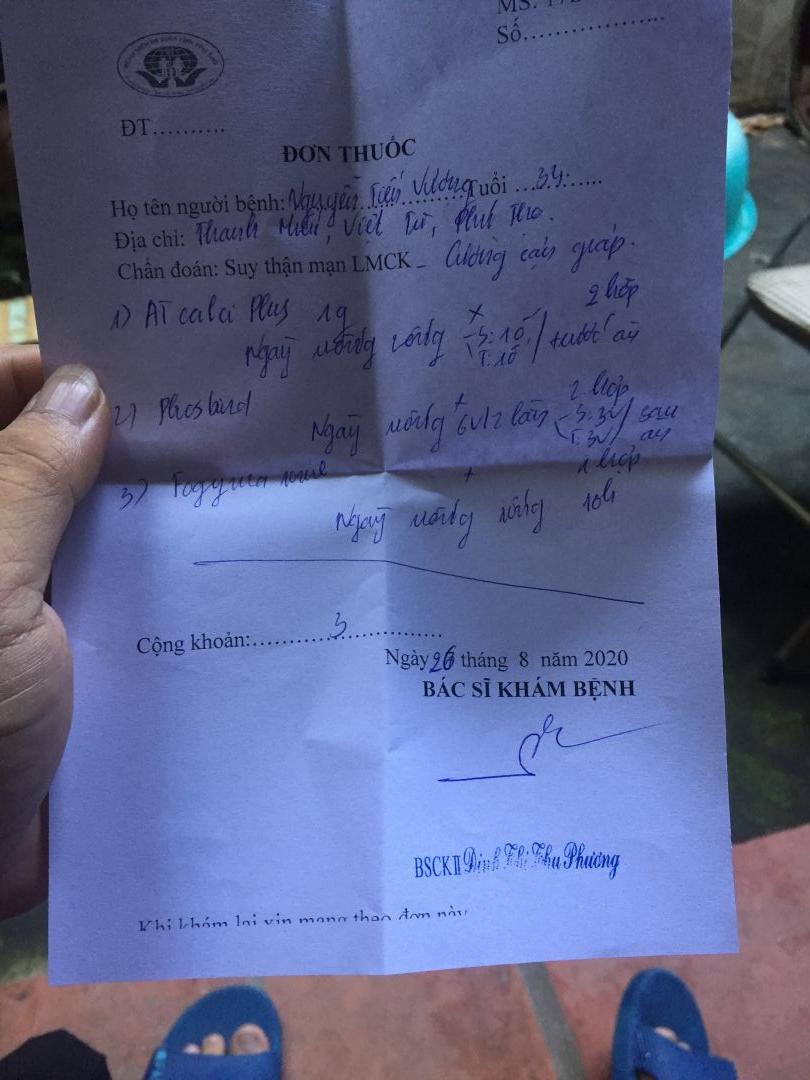 MS: 17
Số...................
ĐT..........
ĐƠN THUỐC
Họ tên người bệnh: Nguyễn Tiến Vương Tuổi ...34.......
Địa chỉ: Thanh Miếu, Việt Trì, Phú Thọ.
Chẩn đoán: Suy thận mạn LMCK - Cường cận giáp.
1) AT calci Plus 1g x 2 hộp
Ngày uống
S: 1
T: 1
trước ăn
2) Phosbind x 2 hộp
Ngày uống 6v/2 lần
S: 3v
T: 3v
sau ăn
3) Fogyma x 1 hộp
Ngày uống 10h
Cộng khoản:..............3..................
Ngày 26 tháng 8 năm 2020
BÁC SĨ KHÁM BỆNH
BSCKII Đinh Thị Thu Phương
Khi khám lại xin mang theo đơn này